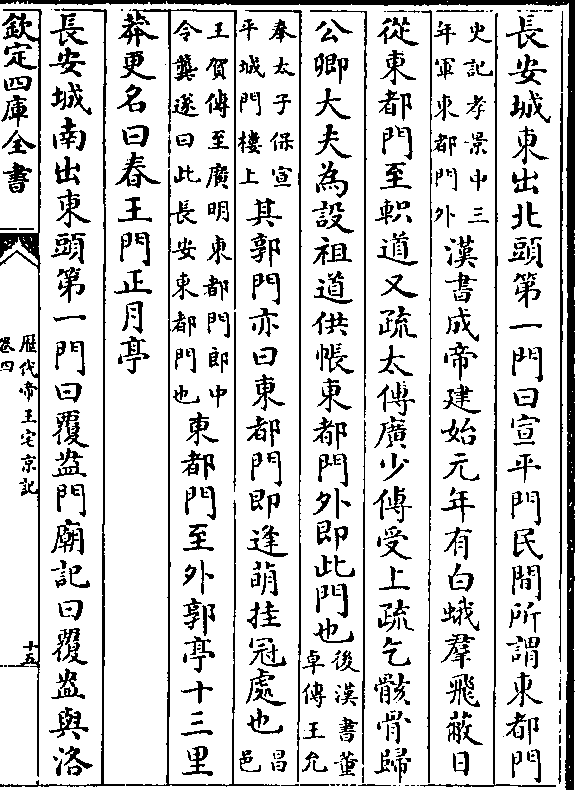 長安城東出北頭第一門曰宣平門民間所謂東都門
史記孝景中三
年軍東都門外
漢書成帝建始元年有白蛾羣飛蔽日
從東都門至軹道又疏太傅廣少傅受上疏乞骸骨歸
公卿大夫為設祖道供帳東都門外即此門也
後漢書董
卓傳王允
奉太子保宣
平城門樓上
其郭門亦曰東都門即逢萌挂冠處也
昌
邑
王賀傳至廣明東都門郎中
令龔遂曰此長安東都門也
東都門至外郭亭十三里
莽更名曰春王門正月亭
長安城南出東頭第一門曰覆盎門廟記曰覆盎與洛
欽定四庫全書
歷代帝王宅京記
卷四
十五